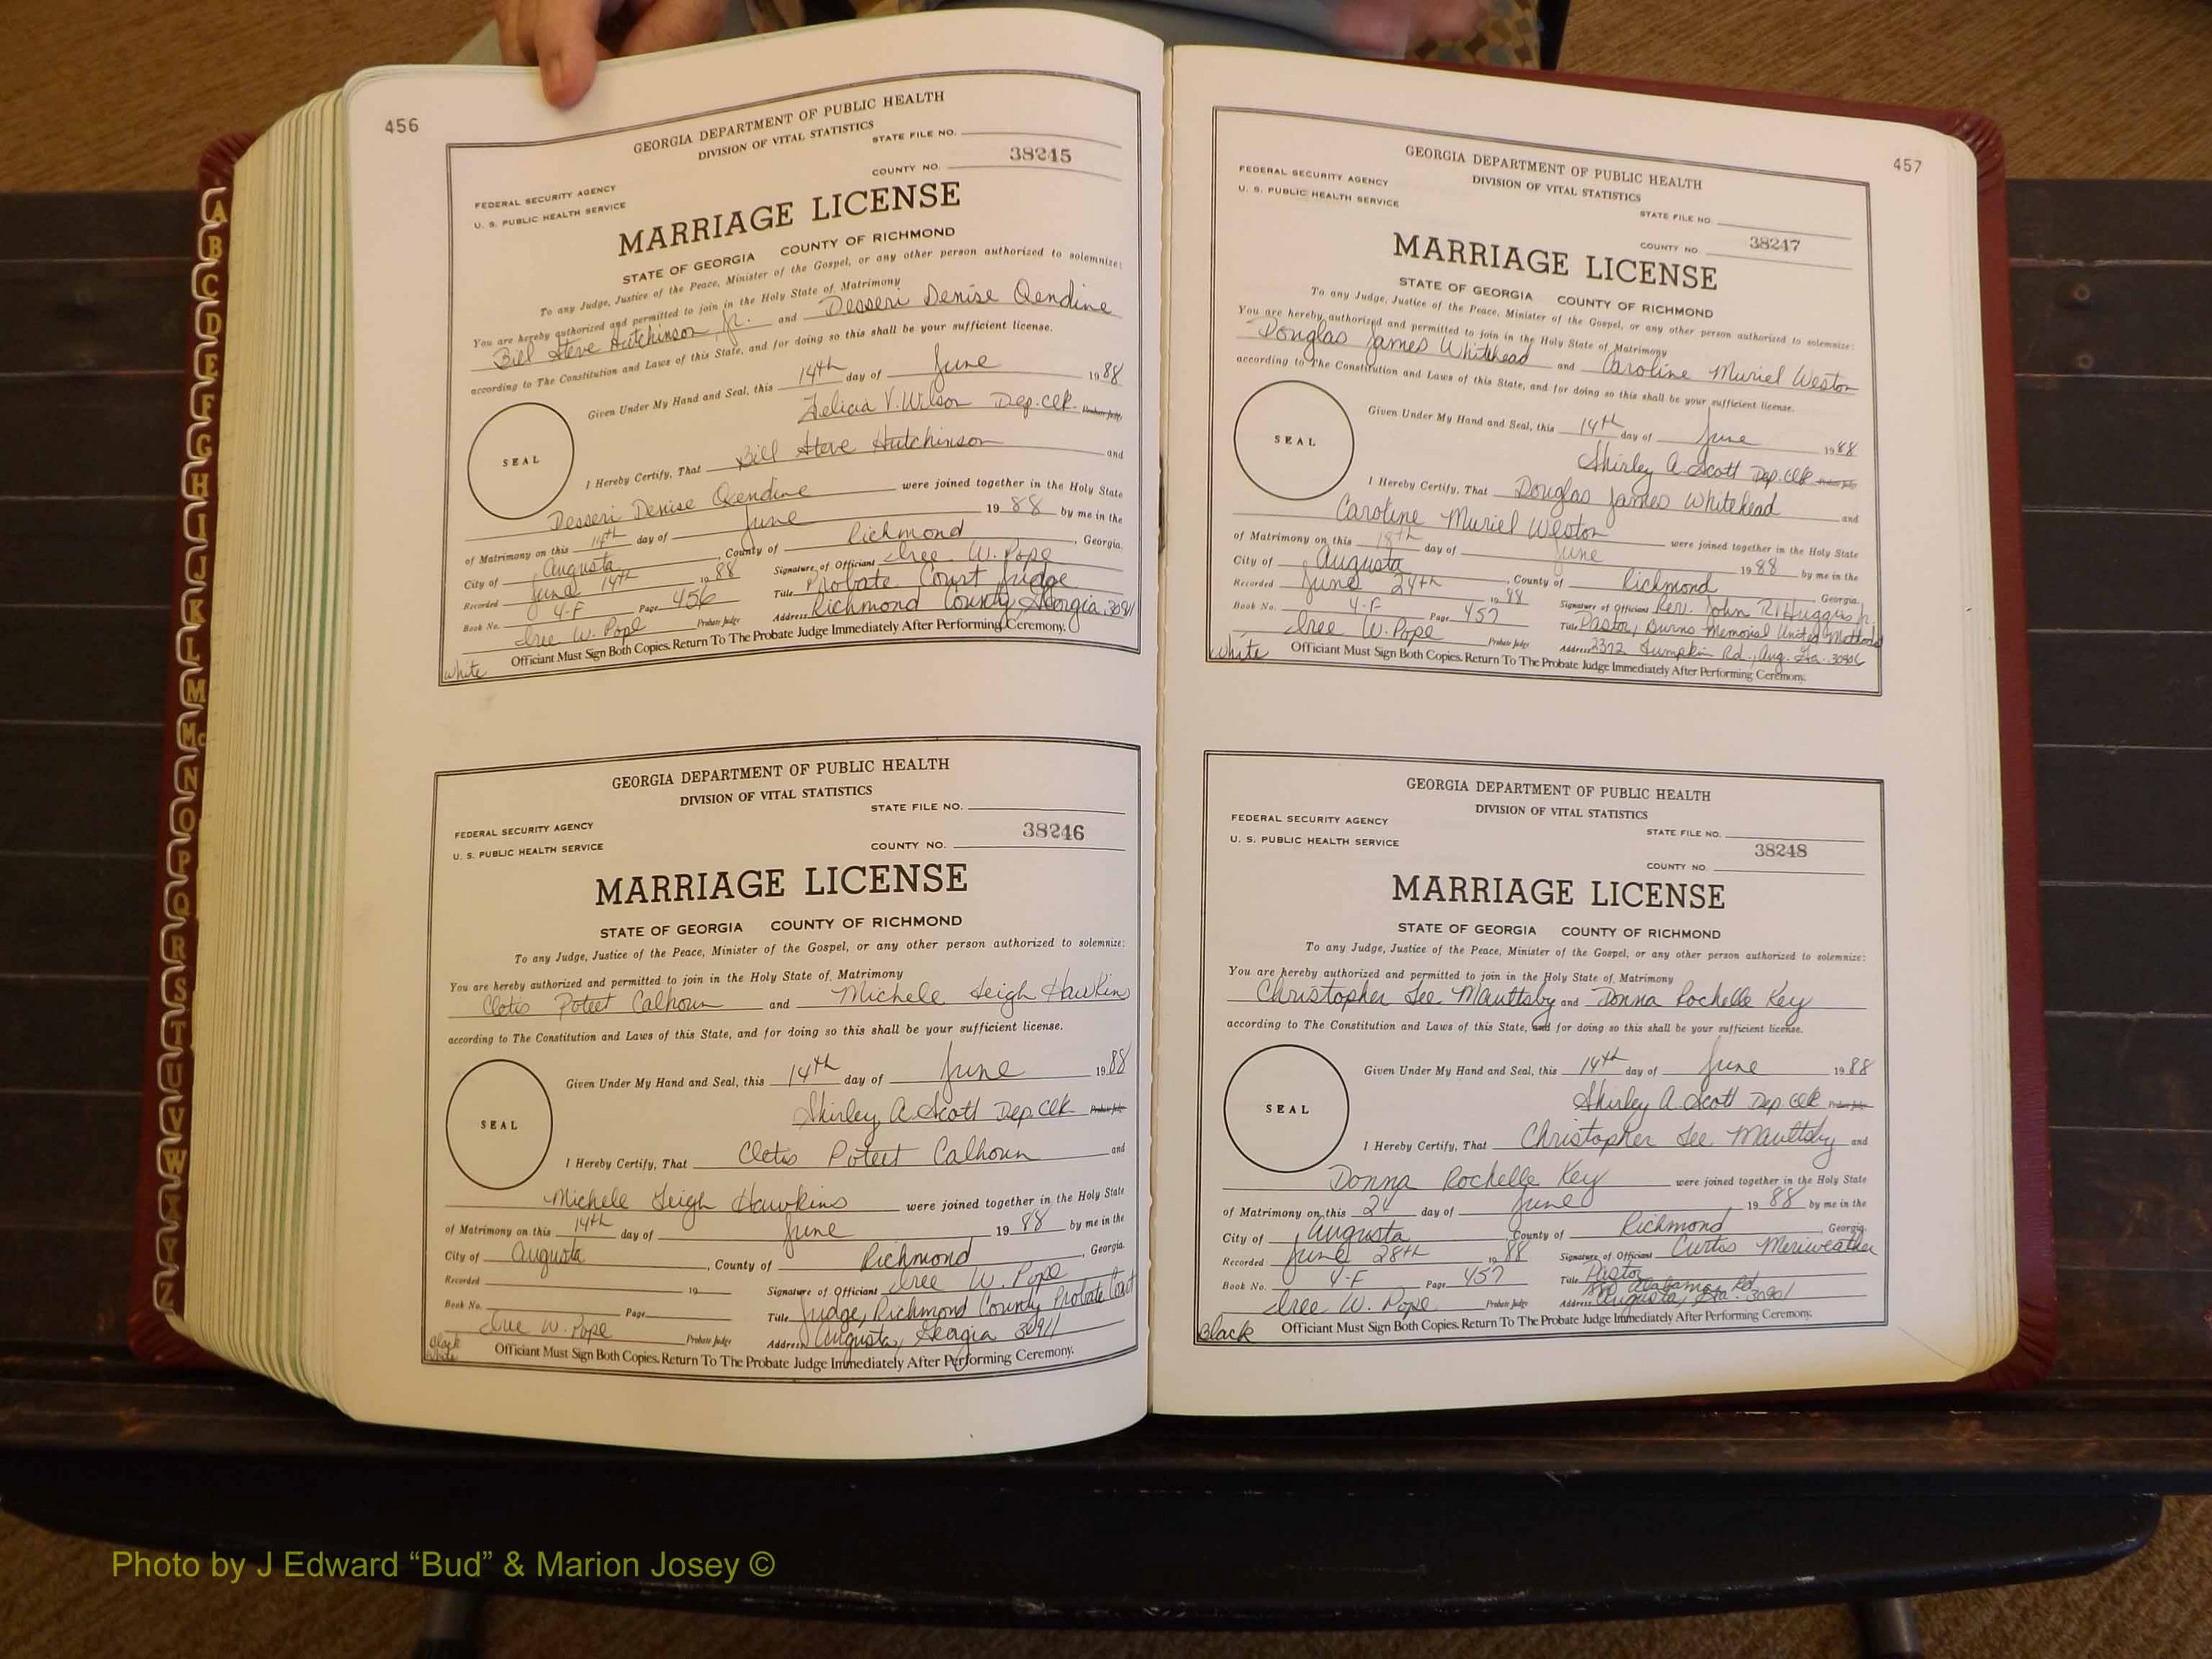 456
GEORGIA DEPARTMENT OF PUBLIC HEALTH
DIVISION OF VITAL STATISTICS
STATE FILE NO.
38245
COUNTY NO.
FEDERAL SECURITY AGENCY
U. S. PUBLIC HEALTH SERVICE
MARRIAGE LICENSE
STATE OF GEORGIA COUNTY OF RICHMOND
To any Judge, Justice of the Peace, Minister of the Gospel, or any other person authorized to solemnize:
You are hereby authorized and permitted to join in the Holy State of Matrimony
Bill Steve Hutchinson, Jr. and Desseri Denise Qendine
according to The Constitution and Laws of this State, and for doing so this shall be your sufficient license.
Given Under My Hand and Seal, this 14th day of June 1988
Felicia V. Wilson Dep. Clk. Probate Judge
SEAL
I Hereby Certify, That Bill Steve Hutchinson and
Desseri Denise Qendine were joined together in the Holy State
of Matrimony on this 14th day of June 1988 by me in the
City of Augusta, County of Richmond, Georgia.
Recorded June 14th 1988 Signature of Officiant Iree W. Pope
Book No. 4-F Page 456 Title Probate Court Judge
Iree W. Pope Probate Judge Address Richmond County, Georgia 30911
White Officiant Must Sign Both Copies. Return To The Probate Judge Immediately After Performing Ceremony.
GEORGIA DEPARTMENT OF PUBLIC HEALTH
DIVISION OF VITAL STATISTICS
STATE FILE NO.
38246
FEDERAL SECURITY AGENCY
U. S. PUBLIC HEALTH SERVICE
COUNTY NO.
MARRIAGE LICENSE
STATE OF GEORGIA COUNTY OF RICHMOND
To any Judge, Justice of the Peace, Minister of the Gospel, or any other person authorized to solemnize:
You are hereby authorized and permitted to join in the Holy State of Matrimony
Cletis Poteet Calhoun and Michele Leigh Hawkins
according to The Constitution and Laws of this State, and for doing so this shall be your sufficient license.
Given Under My Hand and Seal, this 14th day of June 1988
Shirley A. Scott Dep. Clk. Probate Judge
SEAL
I Hereby Certify, That Cletis Poteet Calhoun and
Michele Leigh Hawkins were joined together in the Holy State
of Matrimony on this 14th day of June 1988 by me in the
City of Augusta, County of Richmond, Georgia.
Recorded 19 Signature of Officiant Iree W. Pope
Book No. Page Title Judge, Richmond County Probate Court
Iree W. Pope Probate Judge Address Augusta, Georgia 30911
Black
White
Officiant Must Sign Both Copies. Return To The Probate Judge Immediately After Performing Ceremony.
457
GEORGIA DEPARTMENT OF PUBLIC HEALTH
DIVISION OF VITAL STATISTICS
FEDERAL SECURITY AGENCY
U. S. PUBLIC HEALTH SERVICE
STATE FILE NO.
38247
COUNTY NO.
MARRIAGE LICENSE
STATE OF GEORGIA COUNTY OF RICHMOND
To any Judge, Justice of the Peace, Minister of the Gospel, or any other person authorized to solemnize:
You are hereby authorized and permitted to join in the Holy State of Matrimony
Douglas James Whitehead and Caroline Muriel Weston
according to The Constitution and Laws of this State, and for doing so this shall be your sufficient license.
Given Under My Hand and Seal, this 14th day of June 1988
Shirley A. Scott Dep. Clk. Probate Judge
SEAL
I Hereby Certify, That Douglas James Whitehead and
Caroline Muriel Weston were joined together in the Holy State
of Matrimony on this 18th day of June 1988 by me in the
City of Augusta, County of Richmond Georgia.
Recorded June 24th 1988 Signature of Officiant Rev. John R. Huggins Jr.
Book No. 4-F Page 457 Title Pastor, Burns Memorial United Methodist
Iree W. Pope Probate Judge Address 2372 Lumpkin Rd., Aug. Ga. 30906
White Officiant Must Sign Both Copies. Return To The Probate Judge Immediately After Performing Ceremony.
GEORGIA DEPARTMENT OF PUBLIC HEALTH
DIVISION OF VITAL STATISTICS
FEDERAL SECURITY AGENCY
U. S. PUBLIC HEALTH SERVICE
STATE FILE NO.
38248
COUNTY NO.
MARRIAGE LICENSE
STATE OF GEORGIA COUNTY OF RICHMOND
To any Judge, Justice of the Peace, Minister of the Gospel, or any other person authorized to solemnize:
You are hereby authorized and permitted to join in the Holy State of Matrimony
Christopher Lee Maultsby and Donna Rochelle Key
according to The Constitution and Laws of this State, and for doing so this shall be your sufficient license.
Given Under My Hand and Seal, this 14th day of June 1988
Shirley A. Scott Dep. Clk. Probate Judge
SEAL
I Hereby Certify, That Christopher Lee Maultsby and
Donna Rochelle Key were joined together in the Holy State
of Matrimony on this day of June 1988 by me in the
City of Augusta, County of Richmond, Georgia.
Recorded June 28th 1988 Signature of Officiant Curtis Meriweather
Book No. 4-F Page 457 Title Pastor
Alabama Rd.
Iree W. Pope Probate Judge Address Augusta, Ga. 30901
Black Officiant Must Sign Both Copies. Return To The Probate Judge Immediately After Performing Ceremony.
A
B
C
D
E
F
G
H
I
J
K
L
M
Mc
N
O
P
Q
R
S
T
U
V
W
X
Y
Z
Photo by J Edward “Bud” & Marion Josey ©